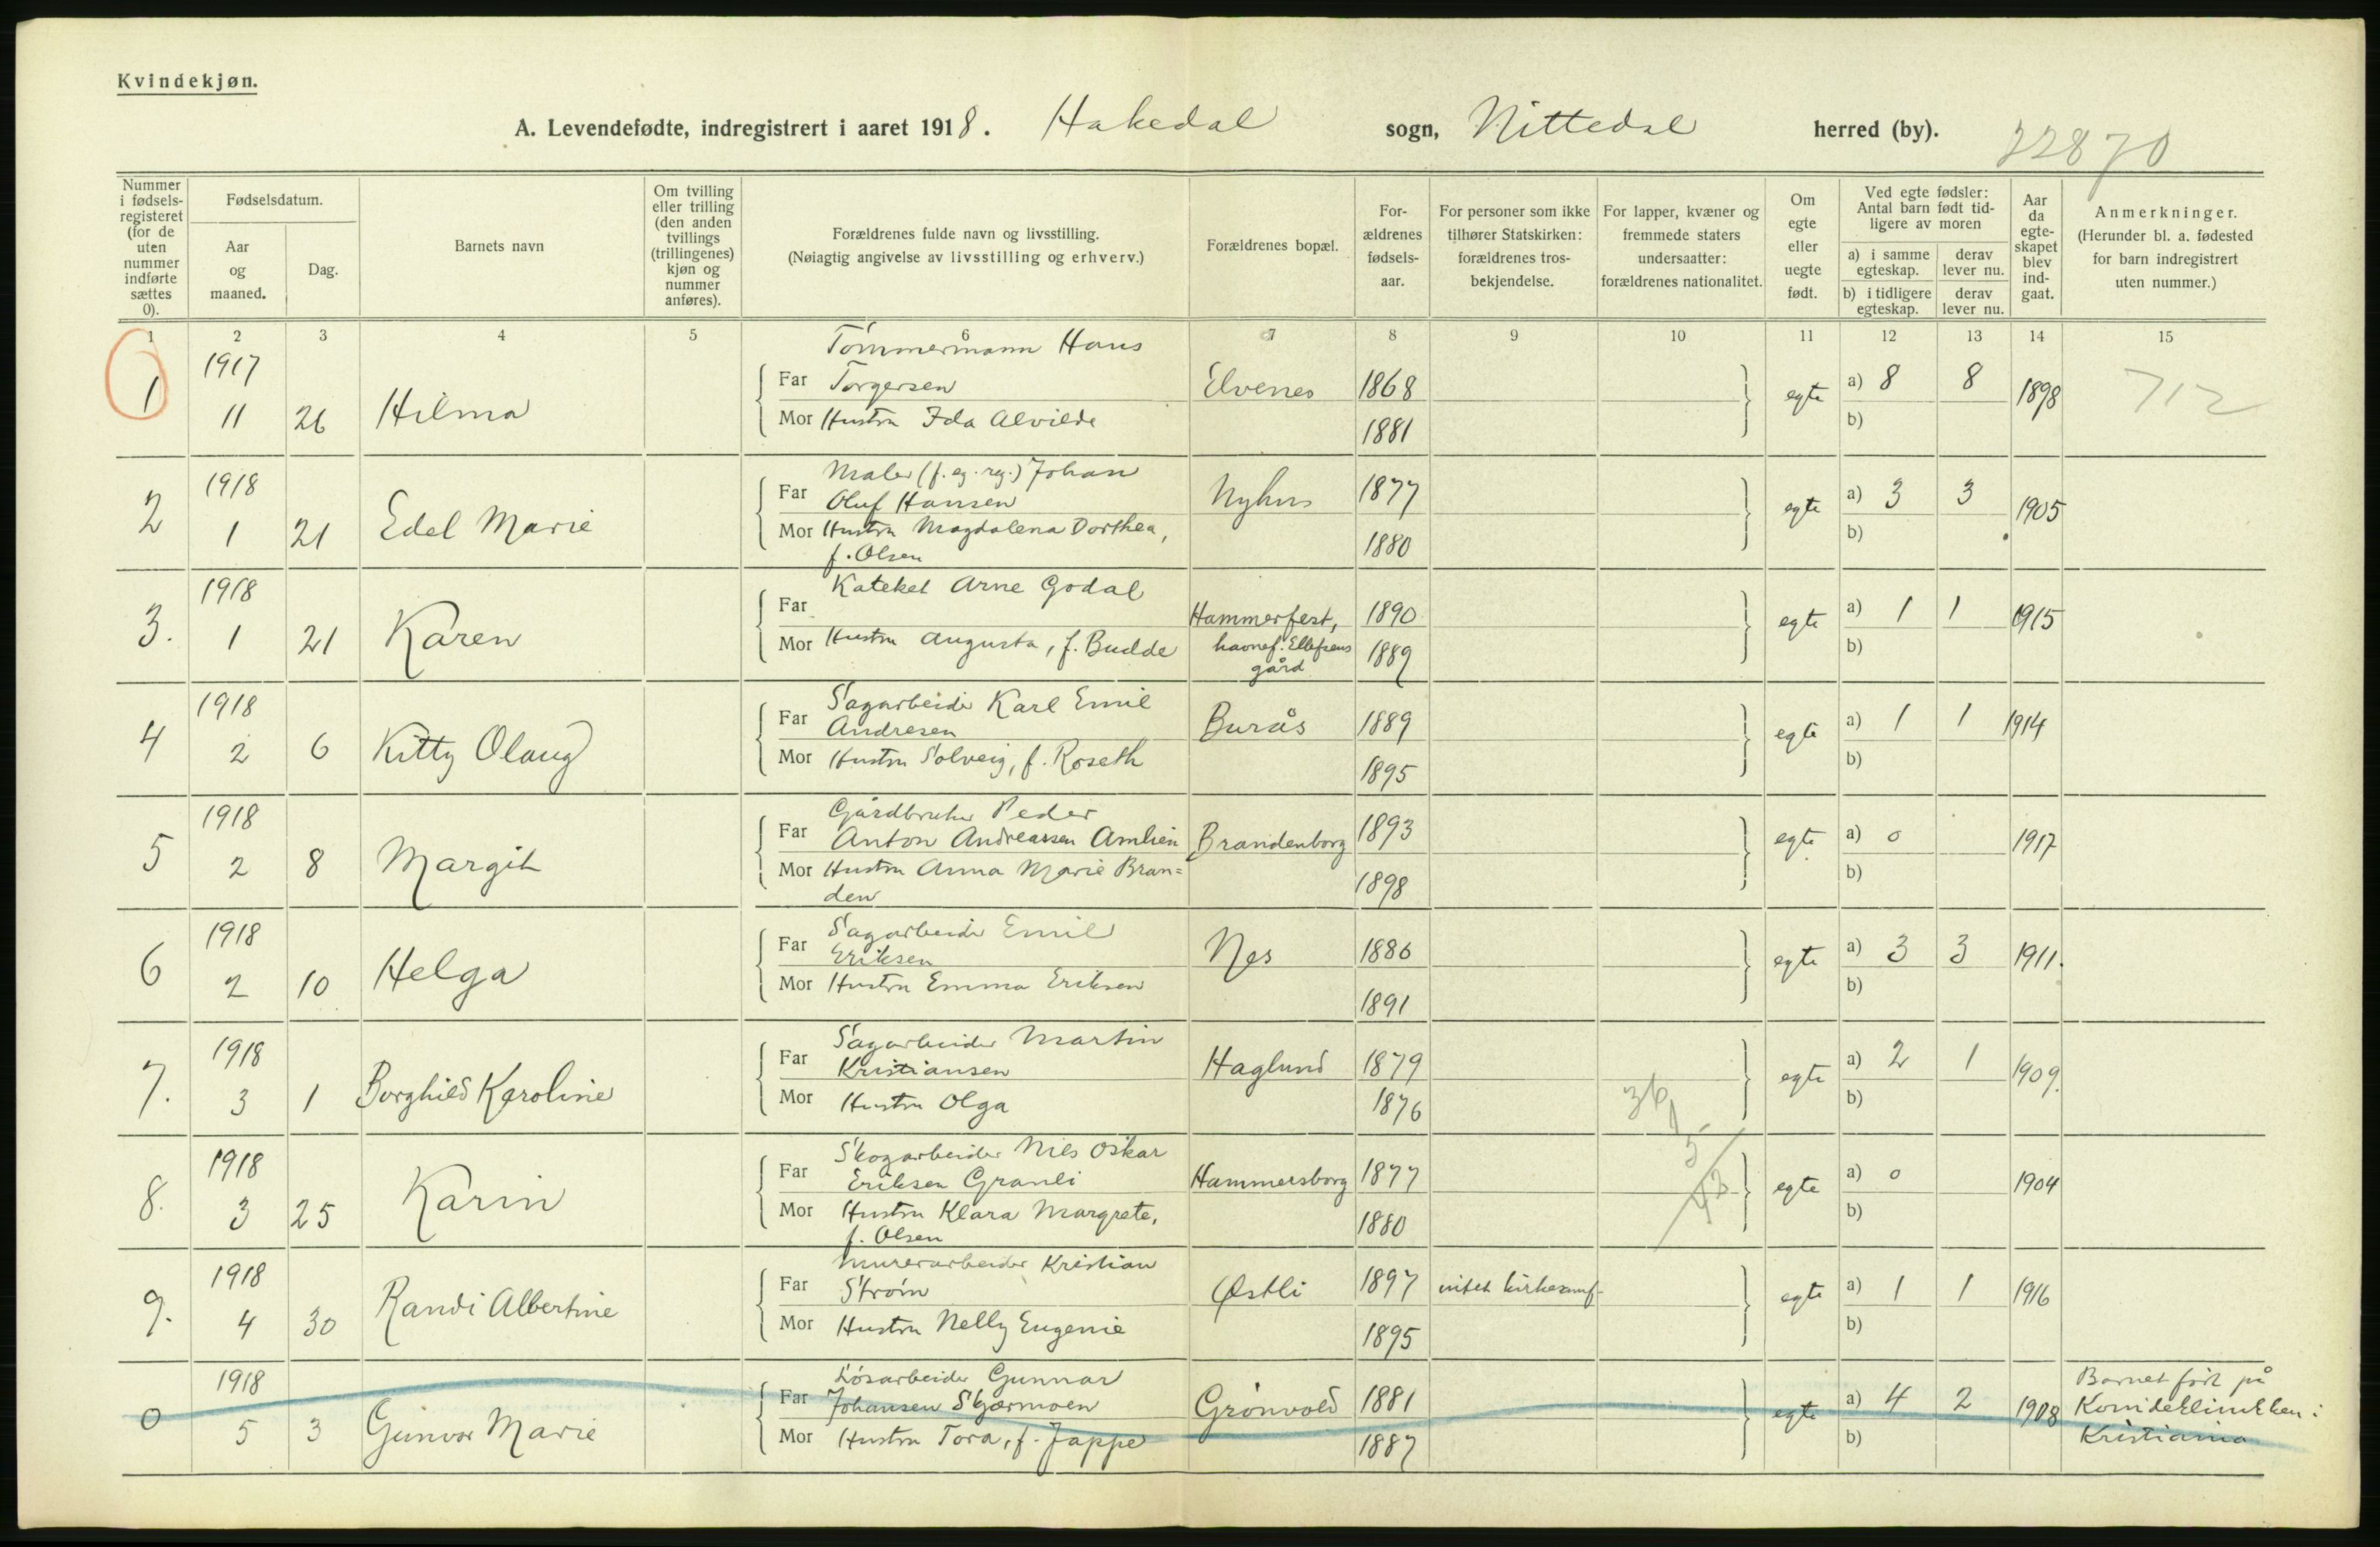 Kvindekjøn.
A. Levendefødte, indregistrert i aaret 1918. Hakedal sogn, Nittedal herred (by).
22870
Nummer i fødselsregisteret (for de uten nummer indførte sættes 0).
Fødselsdatum.
Aar og maaned.
Dag.
Barnets navn
Om tvilling eller trilling (den anden tvillings (trillingenes) kjøn og nummer anføres).
Forældrenes fulde navn og livsstilling.
(Nøiagtig angivelse av livsstilling og erhverv.)
Forældrenes bopæl.
Forældrenes fødselsaar.
For personer som ikke tilhører Statskirken: forældrenes trosbekjendelse.
For lapper, kvæner og fremmede staters undersaatter: forældrenes nationalitet.
Om egte eller uegte født.
Ved egte fødsler: Antal barn født tidligere av moren
a) i samme egteskap. derav lever nu.
b) i tidligere egteskap. derav lever nu.
Aar da egteskapet blev indgaat.
Anmerkninger.
(Herunder bl. a. fødested for barn indregistrert uten nummer.)
1 2 3 4 5 6 7 8 9 10 11 12 13 14 15
1 1917 11 26 Hilma
Tømmermann Hans
Far Torgersen Elvenes 1868 egte a) 8 8 1898 712
Mor Hustru Ida Alvilde 1881 b)
2 1918 1 21 Edel Marie
Maler (f. eg. reg.) Johan
Far Oluf Hansen Nyhus 1877 egte a) 3 3 1905
Mor Hustru Magdalena Dorthea, 1880 b)
f. Olsen
3. 1918 1 21 Karen
Kateket Arne Godal
Far Hammerfest, 1890 egte a) 1 1 1915
Mor Hustru Augusta, f. Budde havnef. Ellefsens gård 1889 b)
4 1918 2 6 Kitty Olaug
Sagarbeider Karl Emil
Far Andresen Burås 1889 egte a) 1 1 1914
Mor Hustru Solveig, f. Roseth 1895 b)
5 1918 2 8 Margit
Gårdbruker Peder
Far Anton Andreassen Amlien Brandenborg 1893 egte a) 0 1917
Mor Hustru Anna Marie Bran= 1898 b)
den
6 1918 2 10 Helga
Sagarbeider Emil
Far Eriksen Nes 1886 egte a) 3 3 1911.
Mor Hustru Emma Eriksen 1891 b)
7. 1918 3 1 Borghild Karoline
Sagarbeider Martin
Far Kristiansen Haglund 1879 egte a) 2 1 1909.
Mor Hustru Olga 1876 36 b)
8. 1918 3 25 Karin
Skogarbeider Nils Oskar
Far Eriksen Granli Hammersborg 1877 egte a) 0 1904
Mor Hustru Klara Margrete, 1880 b)
f. Olsen
9. 1918 4 30 Randi Albertine
Murerarbeider Kristian
Far Strøm Østli 1897 intet kirkesamf. egte a) 1 1 1916
Mor Hustru Nelly Eugenie 1895 b)
0 1918 5 3 Gunvor Marie
Løsarbeider Gunnar
Far Johansen Skjærmoen Grønvold 1881 egte a) 4 2 1908
Mor Hustru Tora, f. Jappe 1887 b)
Barnet født på
Kvindeklinikken i
Kristiania